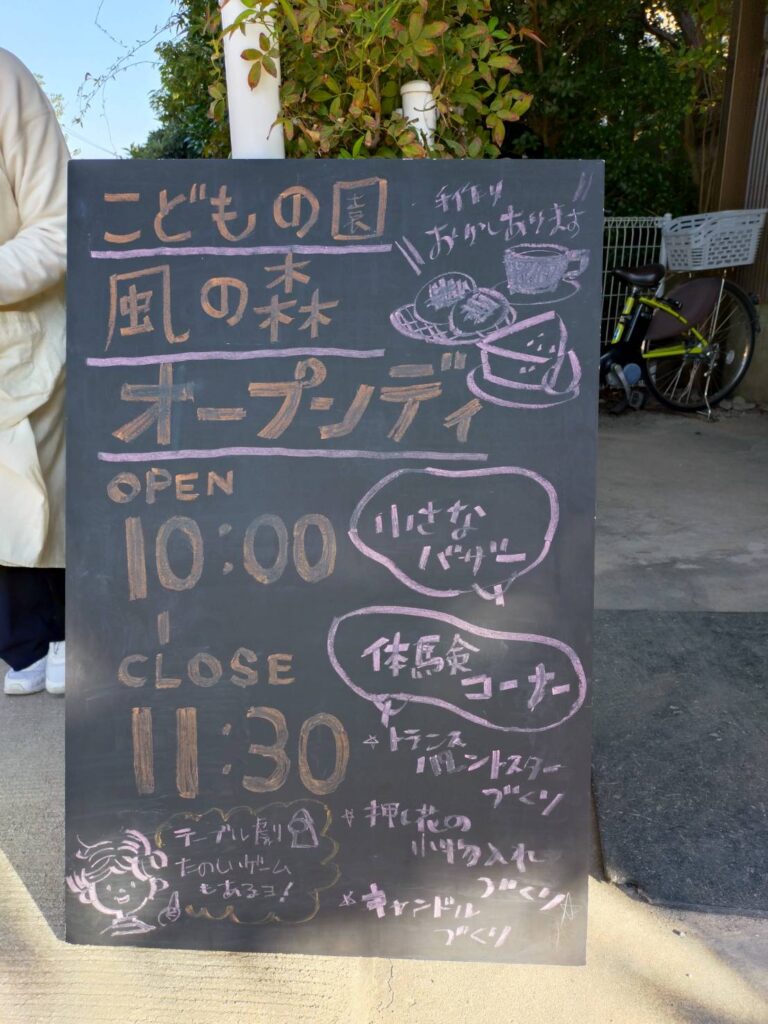 こどもの園
風の森
オープンディ
手作り
おかしあります
OPEN
10:00
CLOSE
11:30
小さな
バザー
体験
コーナー
☆トランス
パレントスター
づくり
☆押し花の
小物入れ
づくり
☆キャンドル
づくり
テーブル劇
たのしいゲーム
もあるヨ!